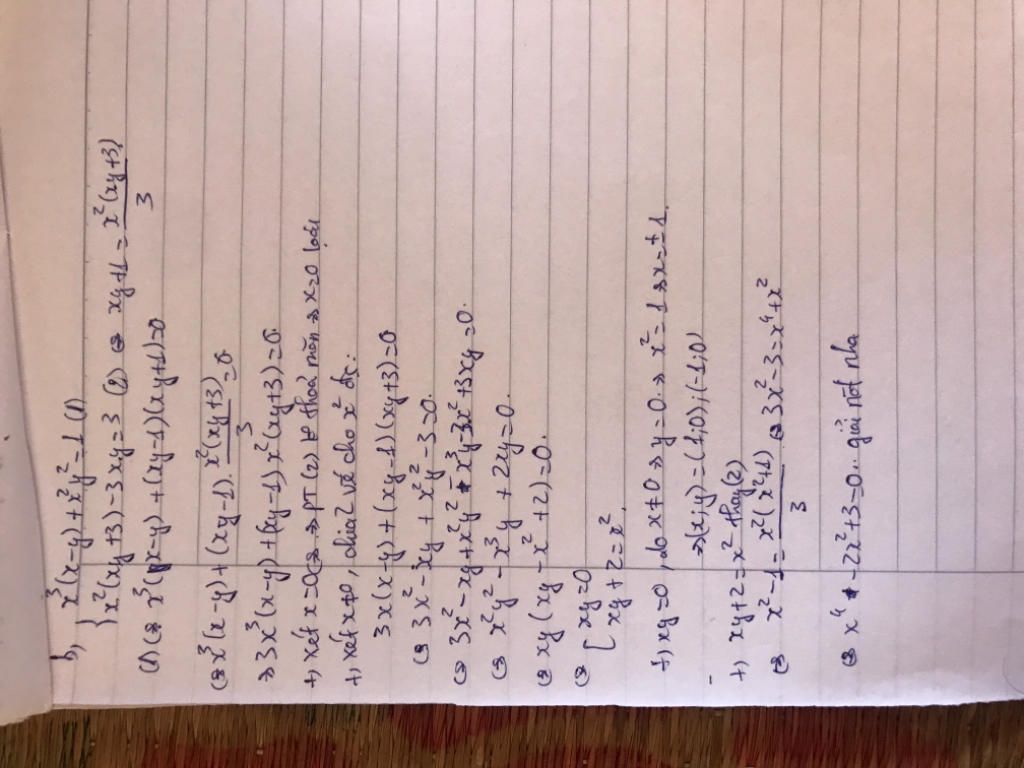 b, { x³(x-y) + x²y² = 1 (1)
{ x²(xy+3) - 3xy = 3 (2) ⇔ xy+1 = x²(xy+3)/3
(1) ⇔ x³(x-y) + (xy-1)(xy+1)=0
⇔ x³(x-y) + (xy-1). x²(xy+3)/3 = 0.
⇒ 3x³(x-y) + (xy-1)x²(xy+3)=0.
+, xét x=0 ⇒ PT (2) thoả mãn ⇒ x=0 loại
+, xét x≠0, chia 2 vế cho x² đc:
3x(x-y) + (xy-1)(xy+3)=0
⇔ 3x² - 3xy + x²y² - 3=0.
⇔ 3x² - xy + x²y² - x³y - 3x² + 3xy = 0.
⇔ x²y² - x³y + 2xy = 0.
⇔ xy(xy - x² + 2)=0.
⇔ [ xy=0
[ xy+2=x².
+, xy=0, do x≠0 ⇒ y=0. ⇒ x²=1 ⇒ x=±1.
⇒(x;y)=(1;0);(-1;0)
+, xy+2=x² thay(2)
⇔ x²-1 = x²(x²+1)/3 ⇔ 3x²-3=x⁴+x²
⇔ x⁴ - 2x²+3=0.. giải nốt nha